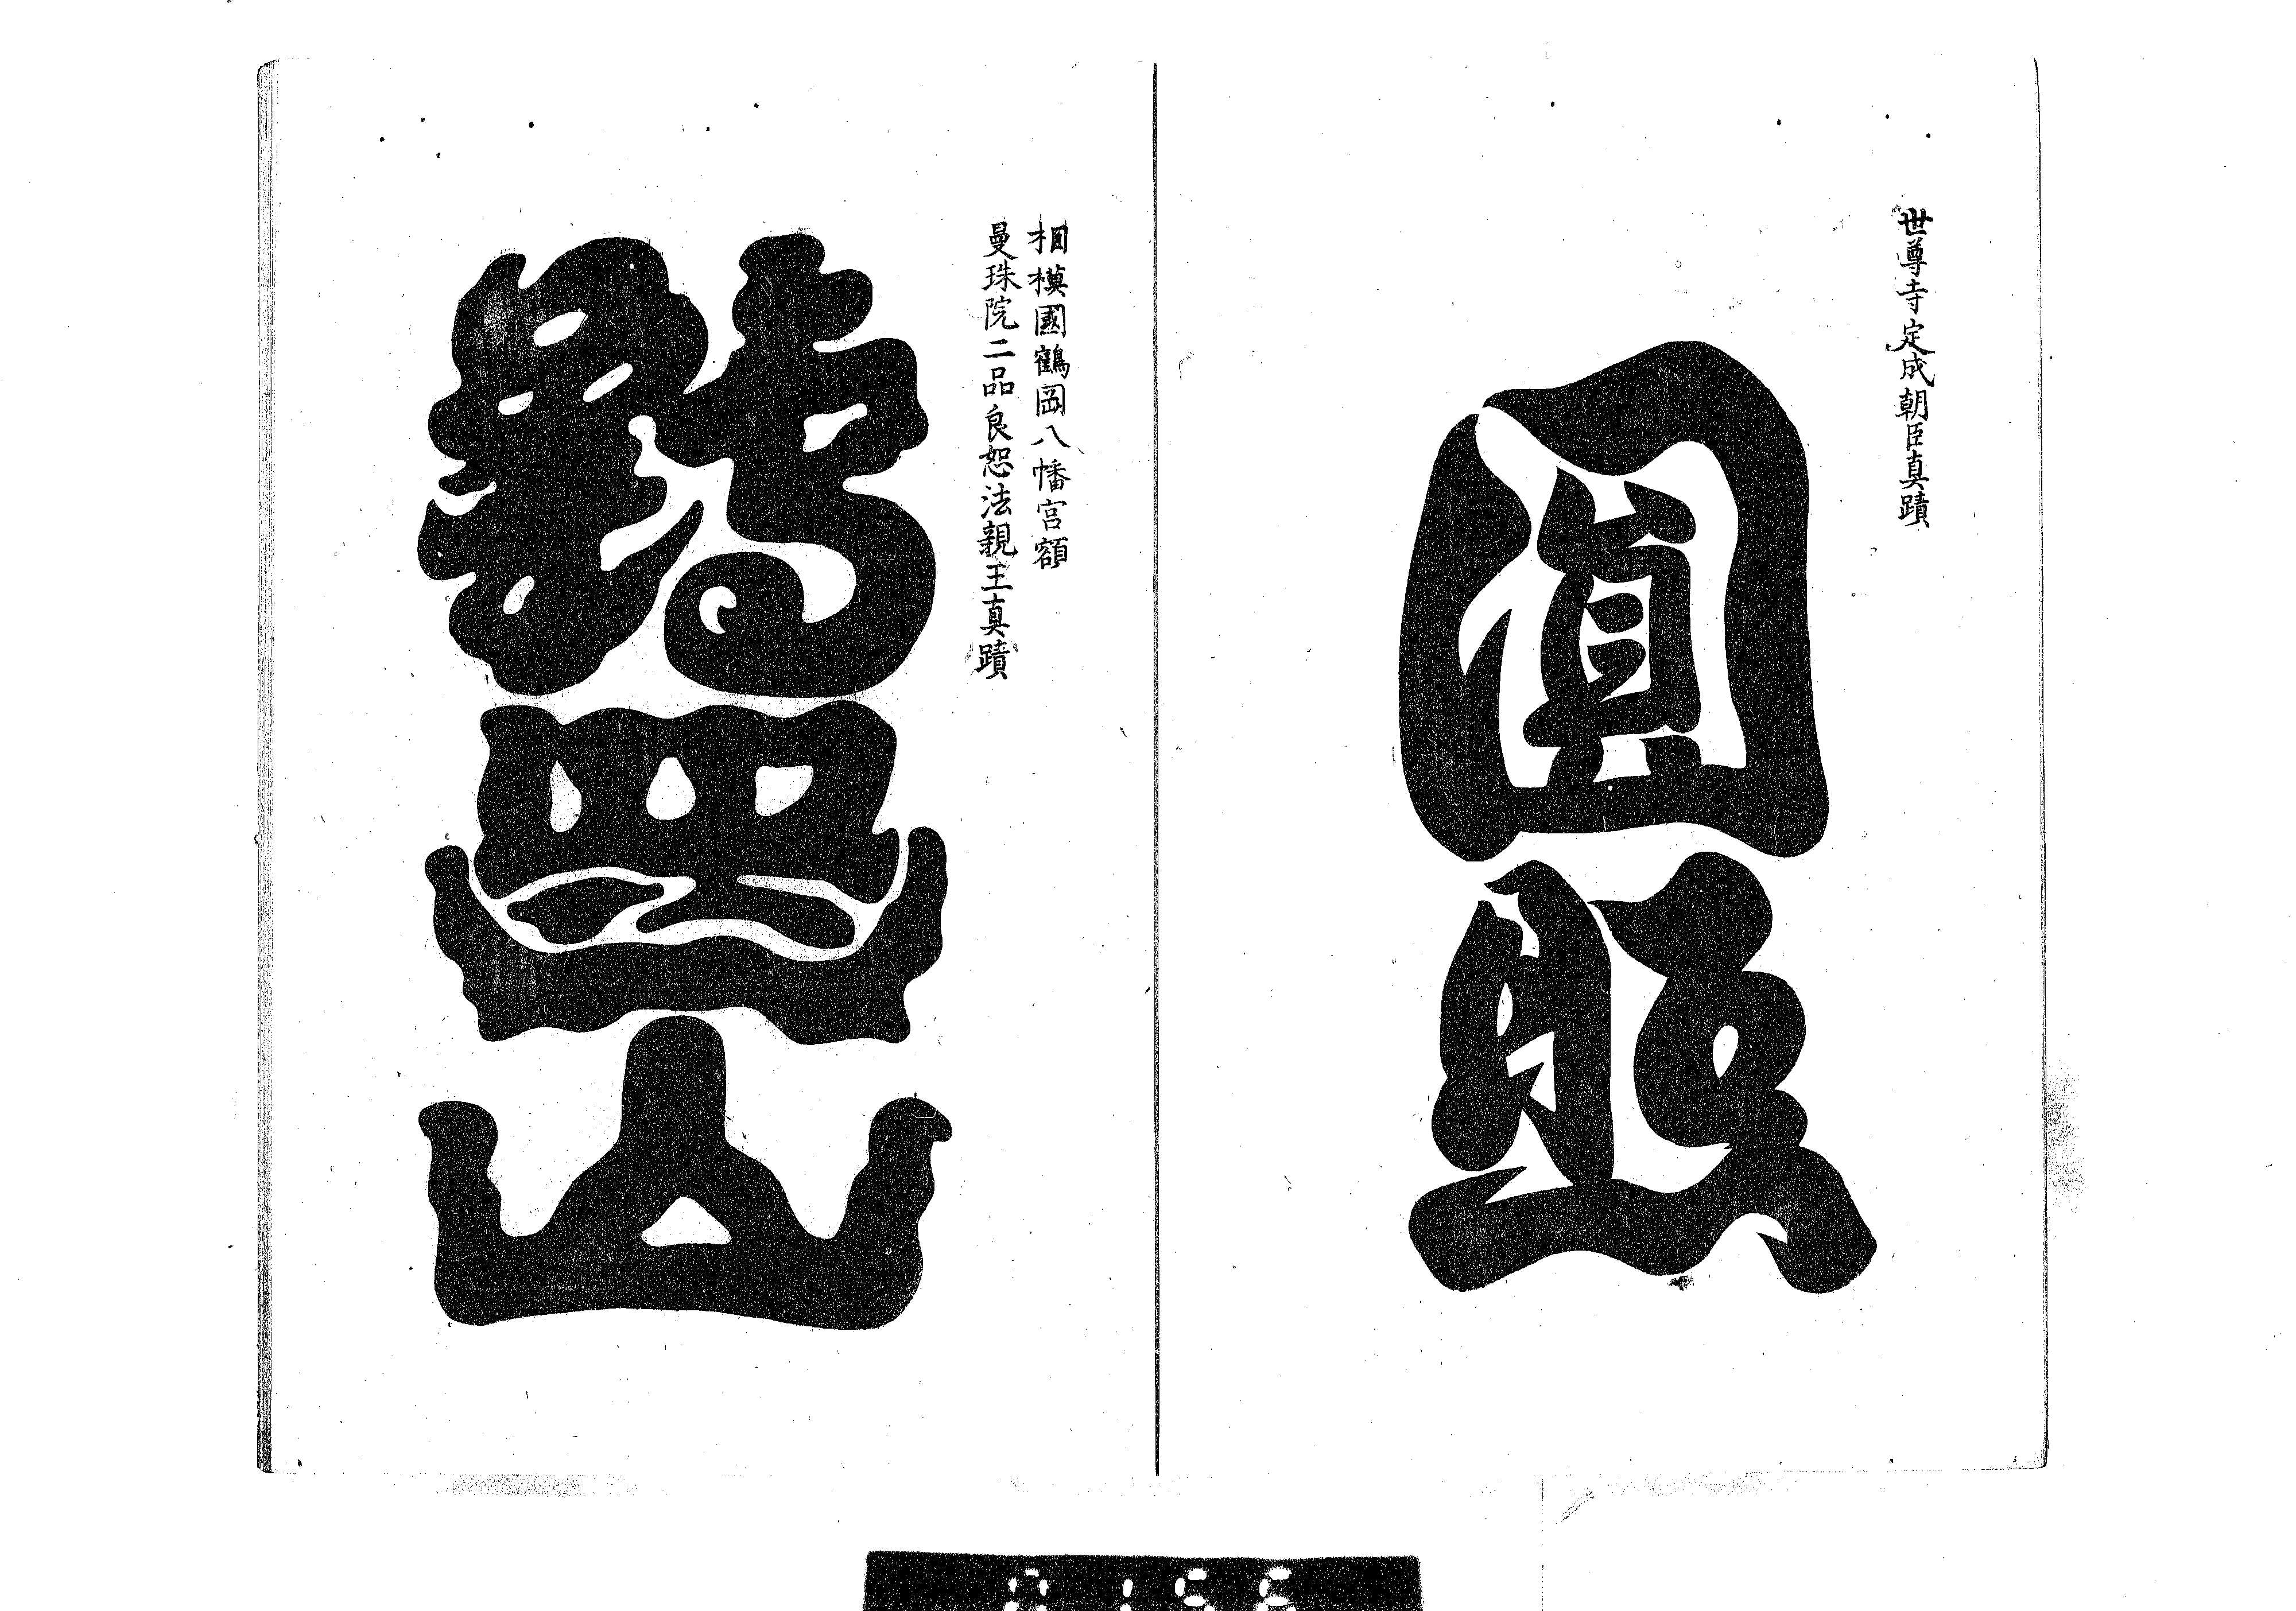 世尊寺定成朝臣真蹟
圓照
相模國鶴岡八幡宮額
曼珠院二品良恕法親王真蹟
鶴岡山